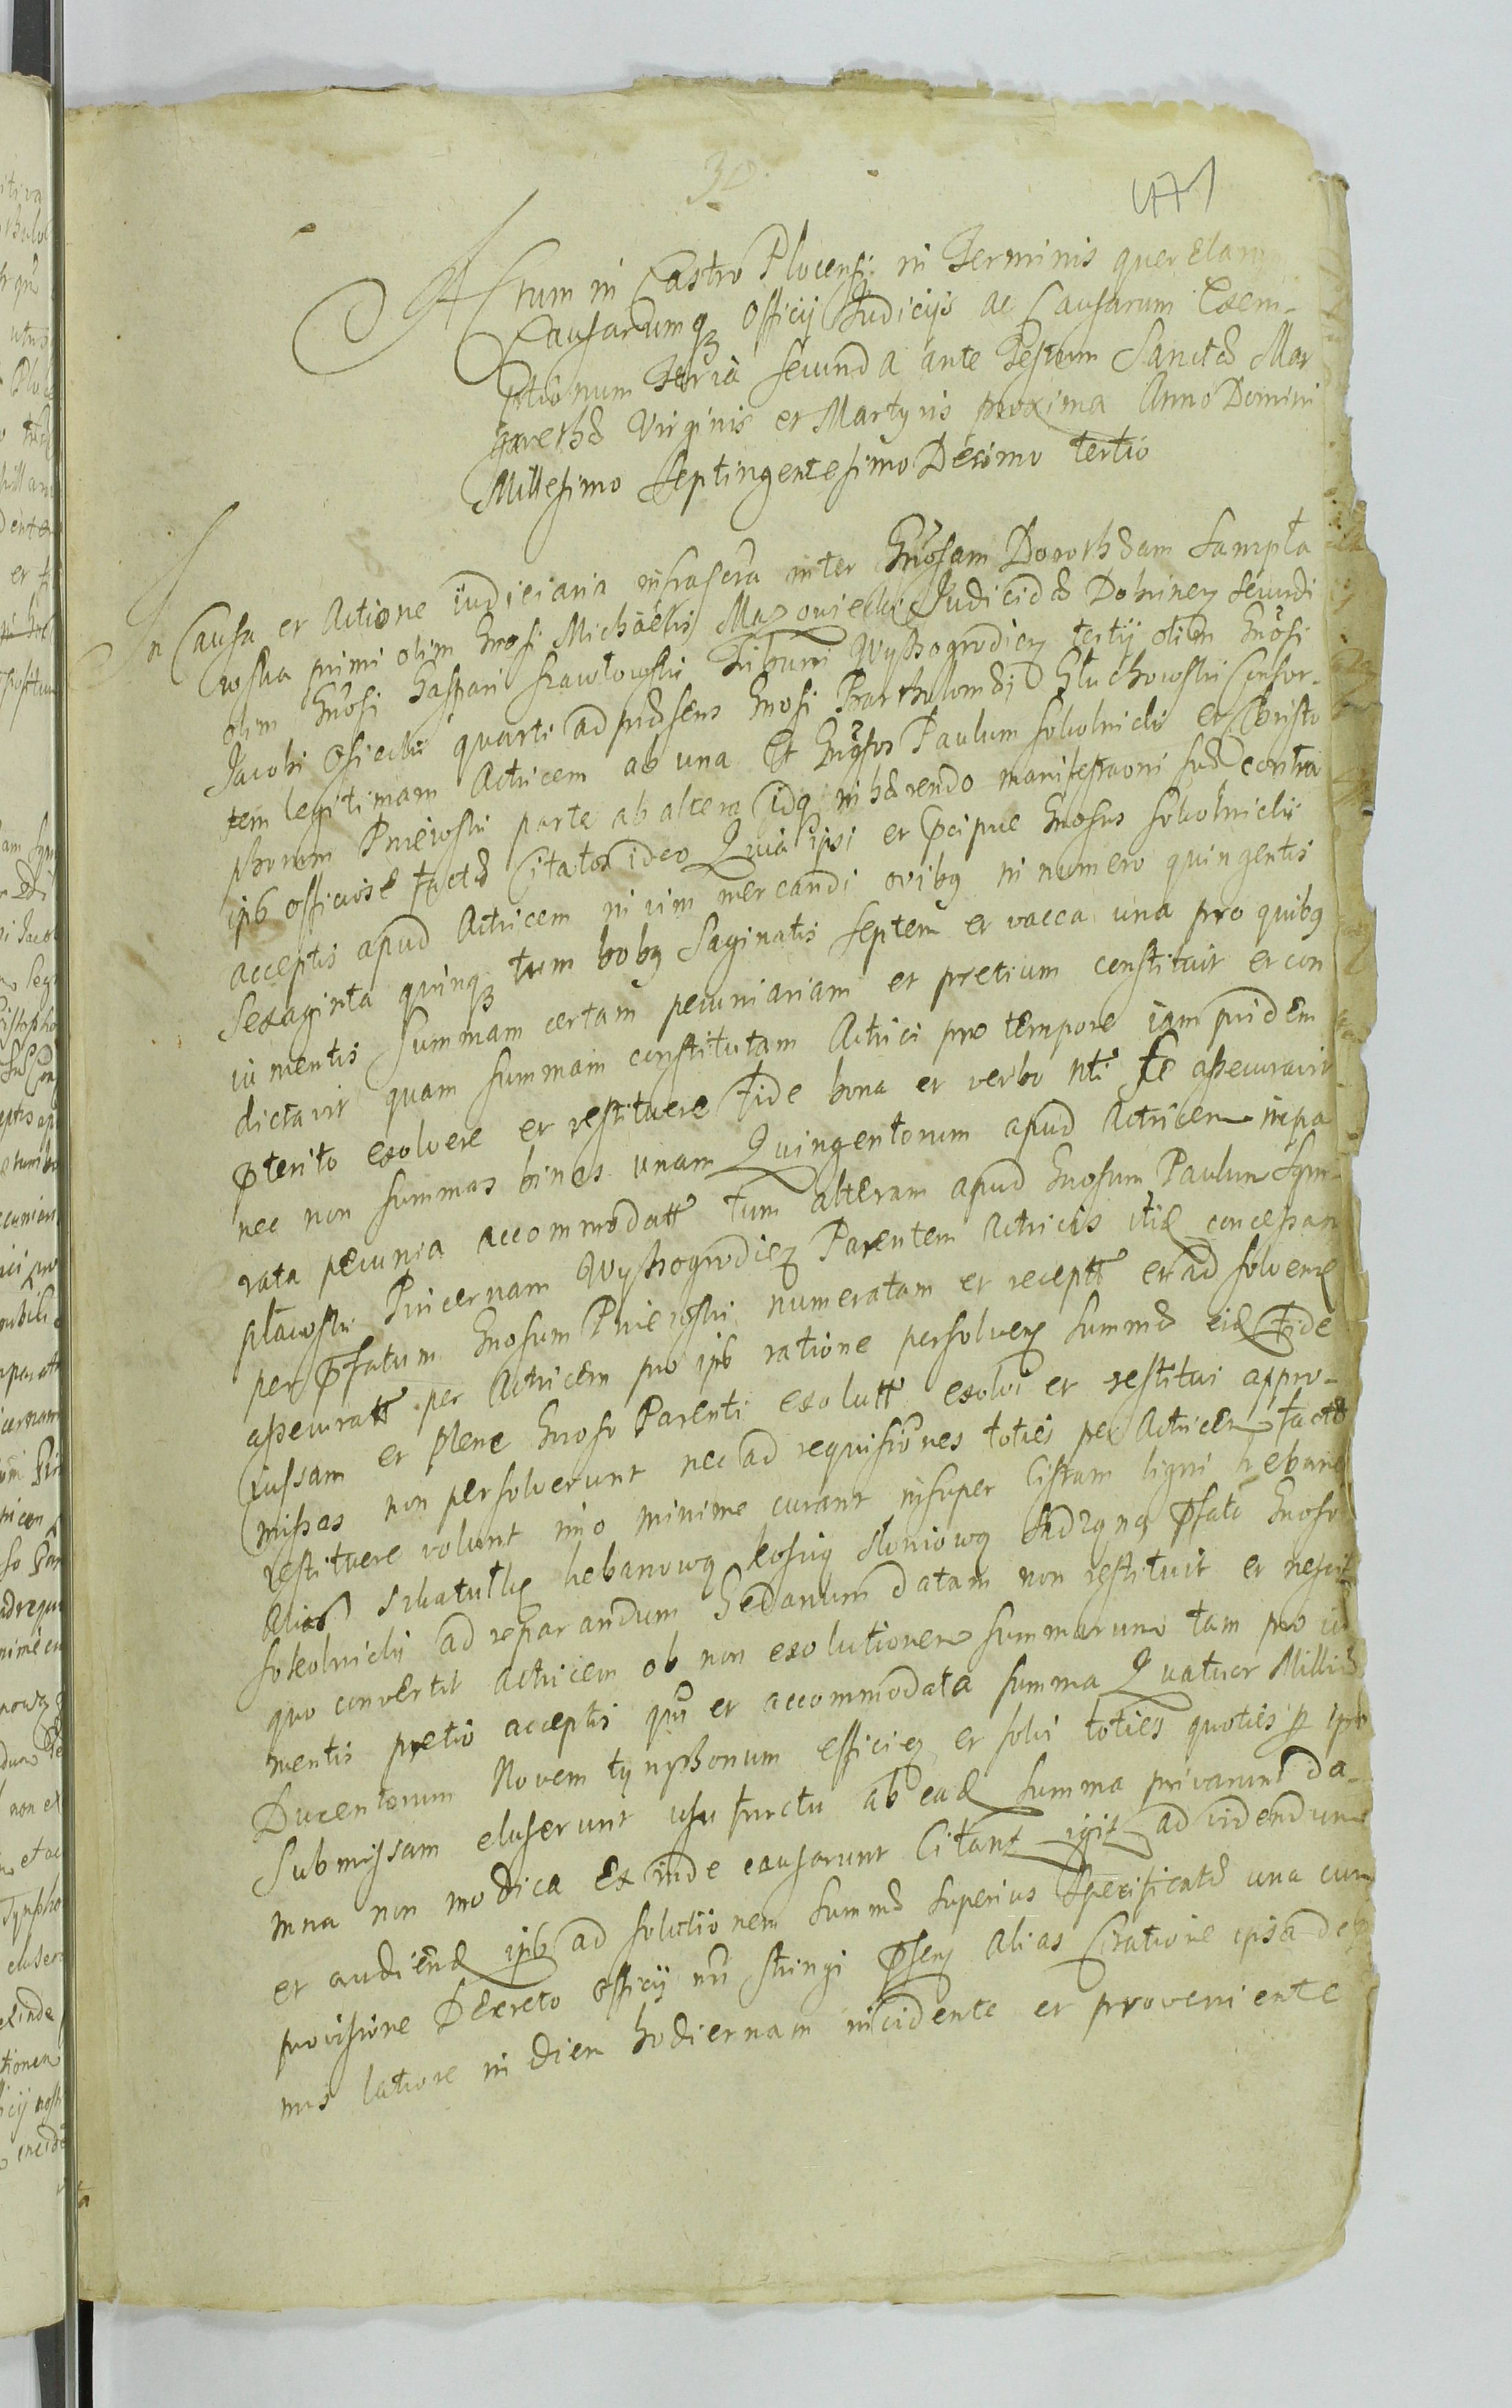 30
471
Actum in Castro Plocensi in Terminis querelarum
Causarumq Officij Judicijs ac Causarum Exem-
ptionum Feria secunda ante Festum Sanctæ Mar
garethæ Virginis et Martyris proxima Anno Domini
Millesimo Septingentesimo Decimo tertio
In Causa et Actione iudiciaria infrascra inter Gnosam Dorothæam Sampła
wska primi olim Gnosi Michaelis Mazowiecki Judicidæ Dobrinen secundi
olim Gnosi Gaspari Srawłowski Tribuni Wyszogrodien tertij olim Gnosi
Jacobi Osiecki quarti ad præsens Gnosi Bartholomæi Głuchowski Consor-
tem legitimam Actricem ab una Et Gnosos Paulum Sokolnicki et Christo
phorum Pniewski parte ab altera idq inhærendo manifestaoni suæ contra
ipsos officiose factæ Citatos ideo Quia ipsi et pcipue Gnosus Sokolnicki
acceptis apud Actricem in vim mercandi ovibq in numero quingentis
Sexaginta quinq tum bobq saginatis septem et vacca una pro quibq
iumentis summam certam pecuniariam et pretium constituit et con
dictavit quam summam constitutam Actrici pro tempore iam pridem
pterito exolvere et restituere fide bona et verbo nti se assecuravit
nec non summas binas unam Quingentorum apud Actricem impa
rata pecunia accommodatt tum alteram apud Gnosum Paulum Sam-
pławski Pincernam Wyszogrodien Parentem Actricis itid concessam
per pfatum Gnosum Pniewski numeratam et receptt et ad solvend
assecuratt per Actricem pro ipso ratione persolven summæ eid fide
iussam et plene Gnoso Parenti exolutt exolvi et restitui appro-
missas non persolverunt nec ad requisiones toties per Actricem factæ
restituere volunt imo minime curant insuper Cistam ligni hebani
alias szkatułkę hebanową kością słoniową sadzoną pfato Gnoso
Sokolnicki ad reparandum Gedanum datam non restituit et nescit
quo convertit Actricem ob non exolutionem summarum tam pro iu
mentis pretio acceptis qm et accommodata summa Quatuor Millia
Ducentorum Novem tynphonum efficien et solvi toties quoties p ipso
submissam eluserunt usu fructu ab ead summa privarunt da-
mna non modica ex inde causarunt Citant igit ad videndum
et audiend ipso ad solutionem summæ superius specificatæ una cum
provisione Decreto officij nri stringi psen alias Citatione ipsa de
mis latiore in diem hodiernam incidente et proveniente